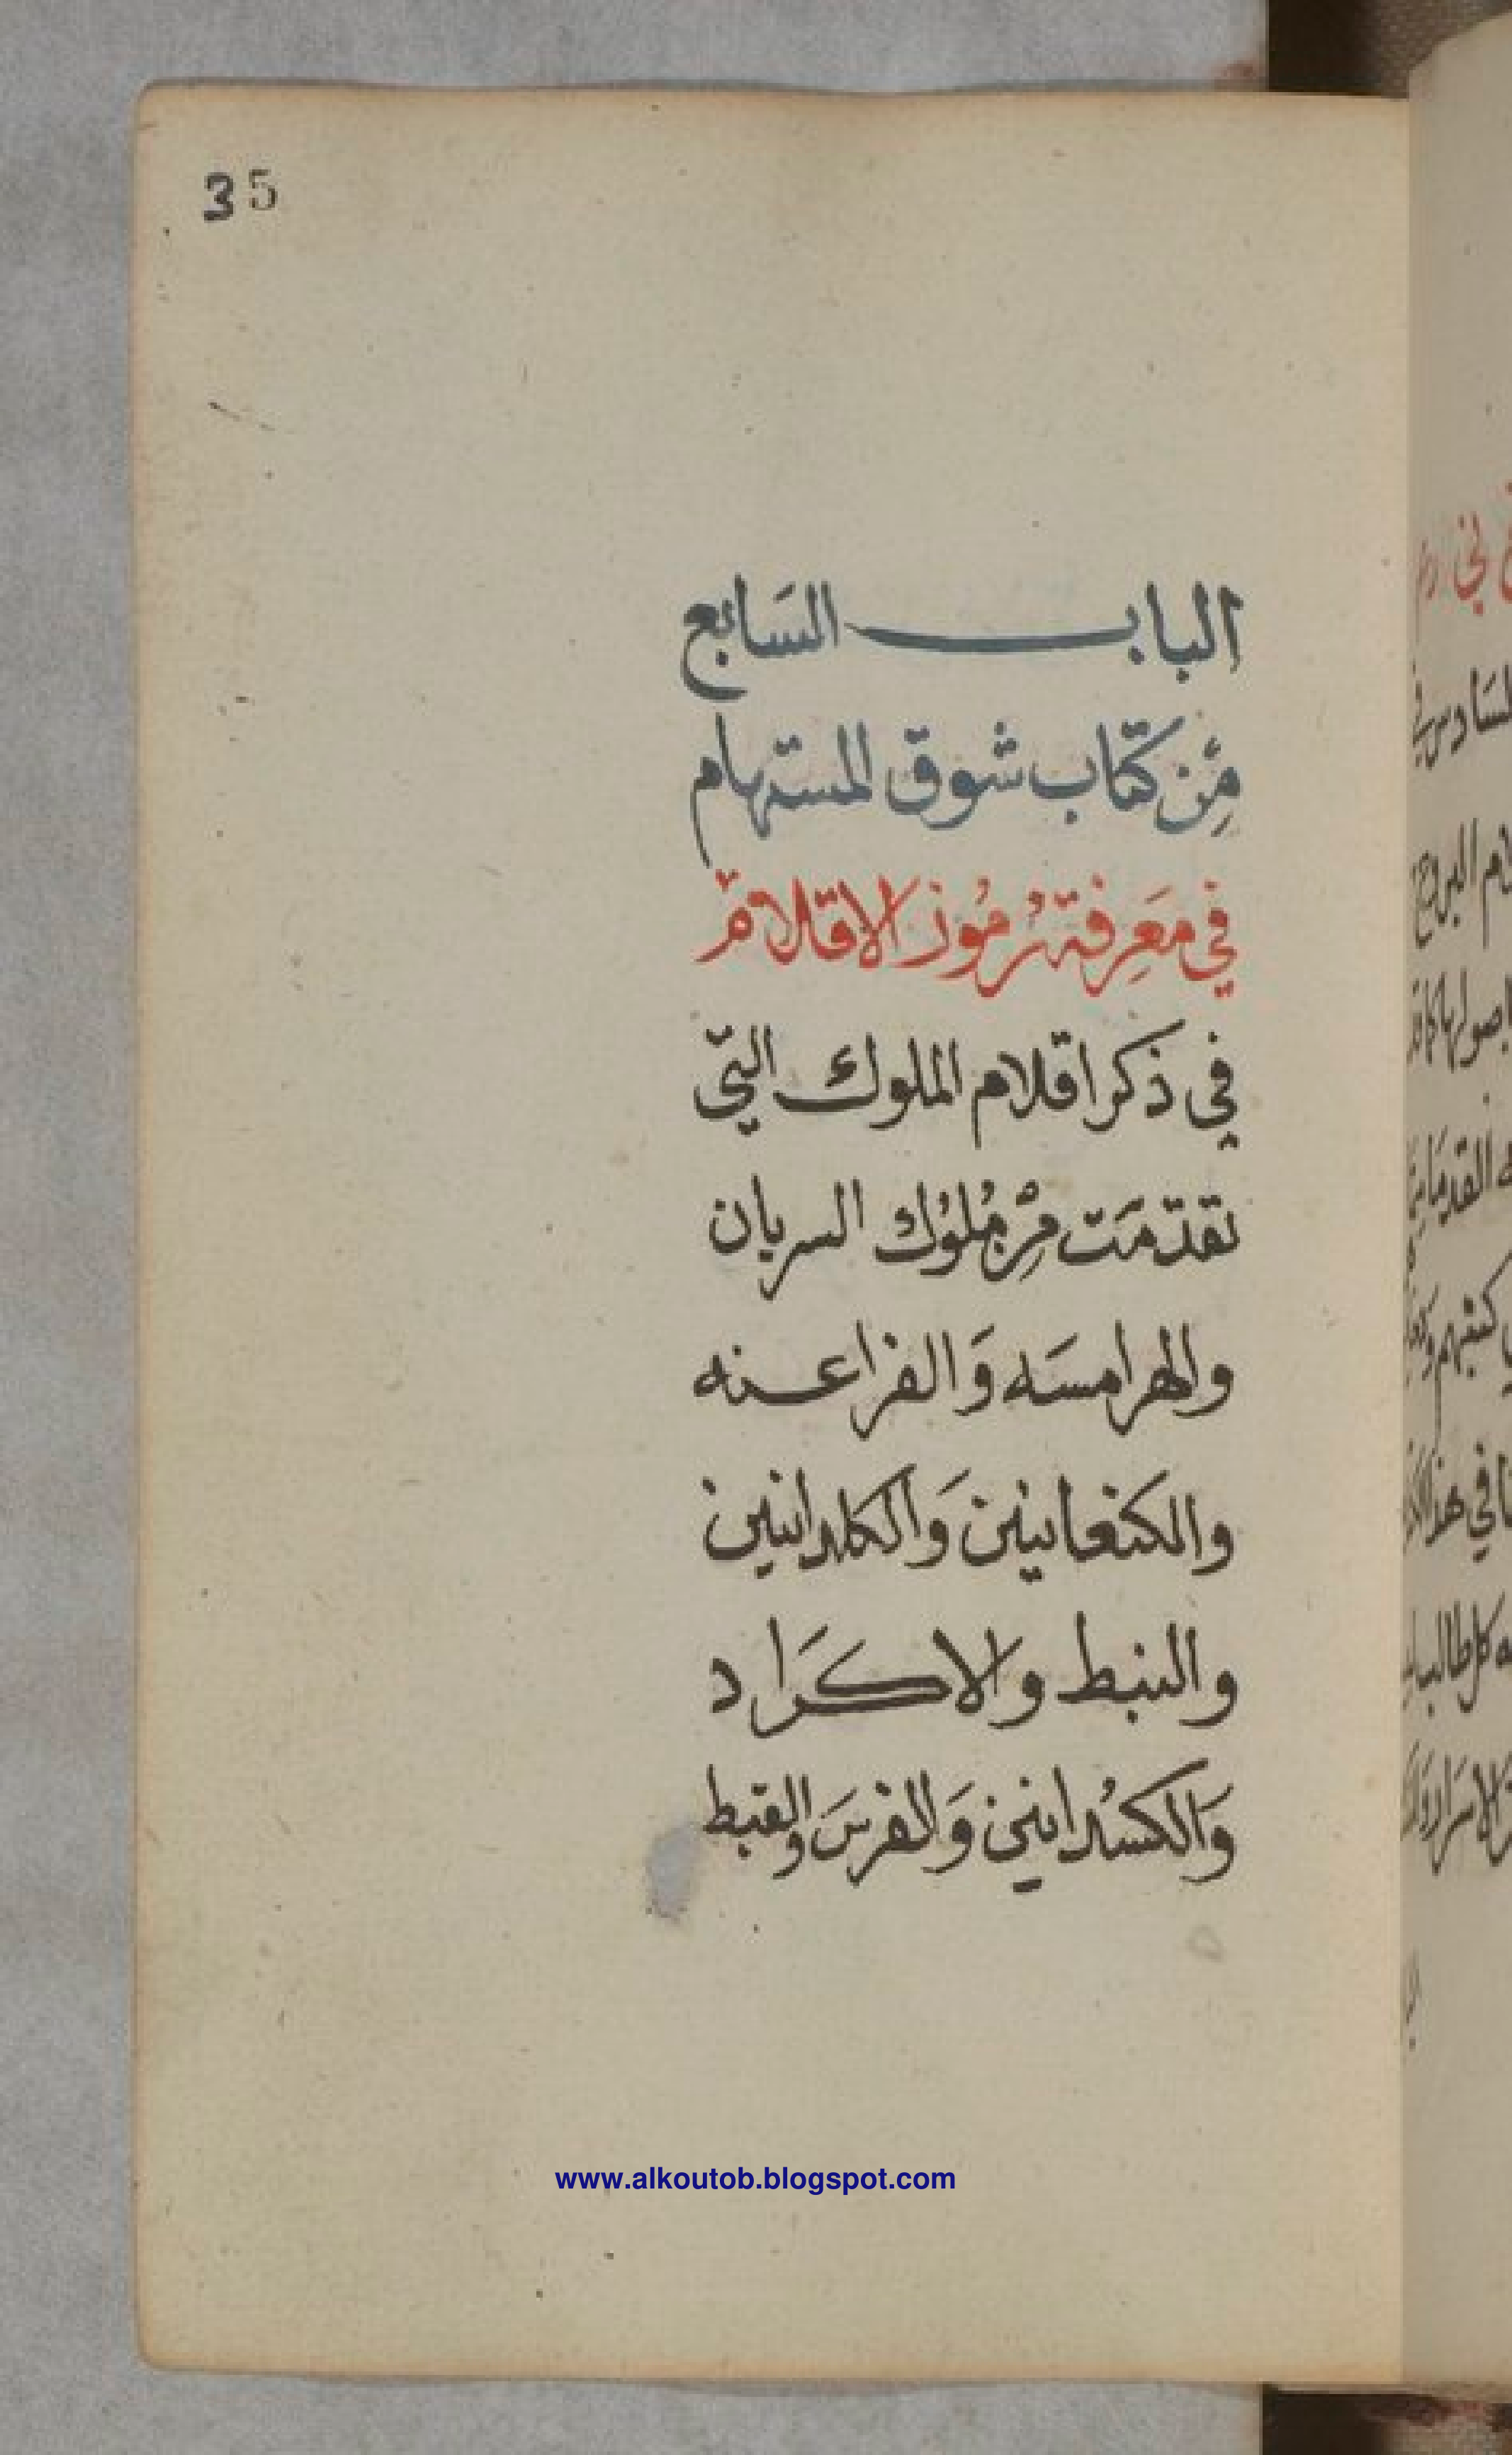 35
الباب السَابع
مِْن كتَاب شوق المستهام
في معَرِفة رُمُوز الاقلام
في ذكر اقلام الملوك التي
تقدّمَت مِْن مُلوُك السريان
والهرامسَه وَالفراعنه
والكنعانيين وَالكلدانيين
والنبط والاكَرَاد
وَالكسُدانين وَالفرسَ والقبط
www.alkoutob.blogspot.com